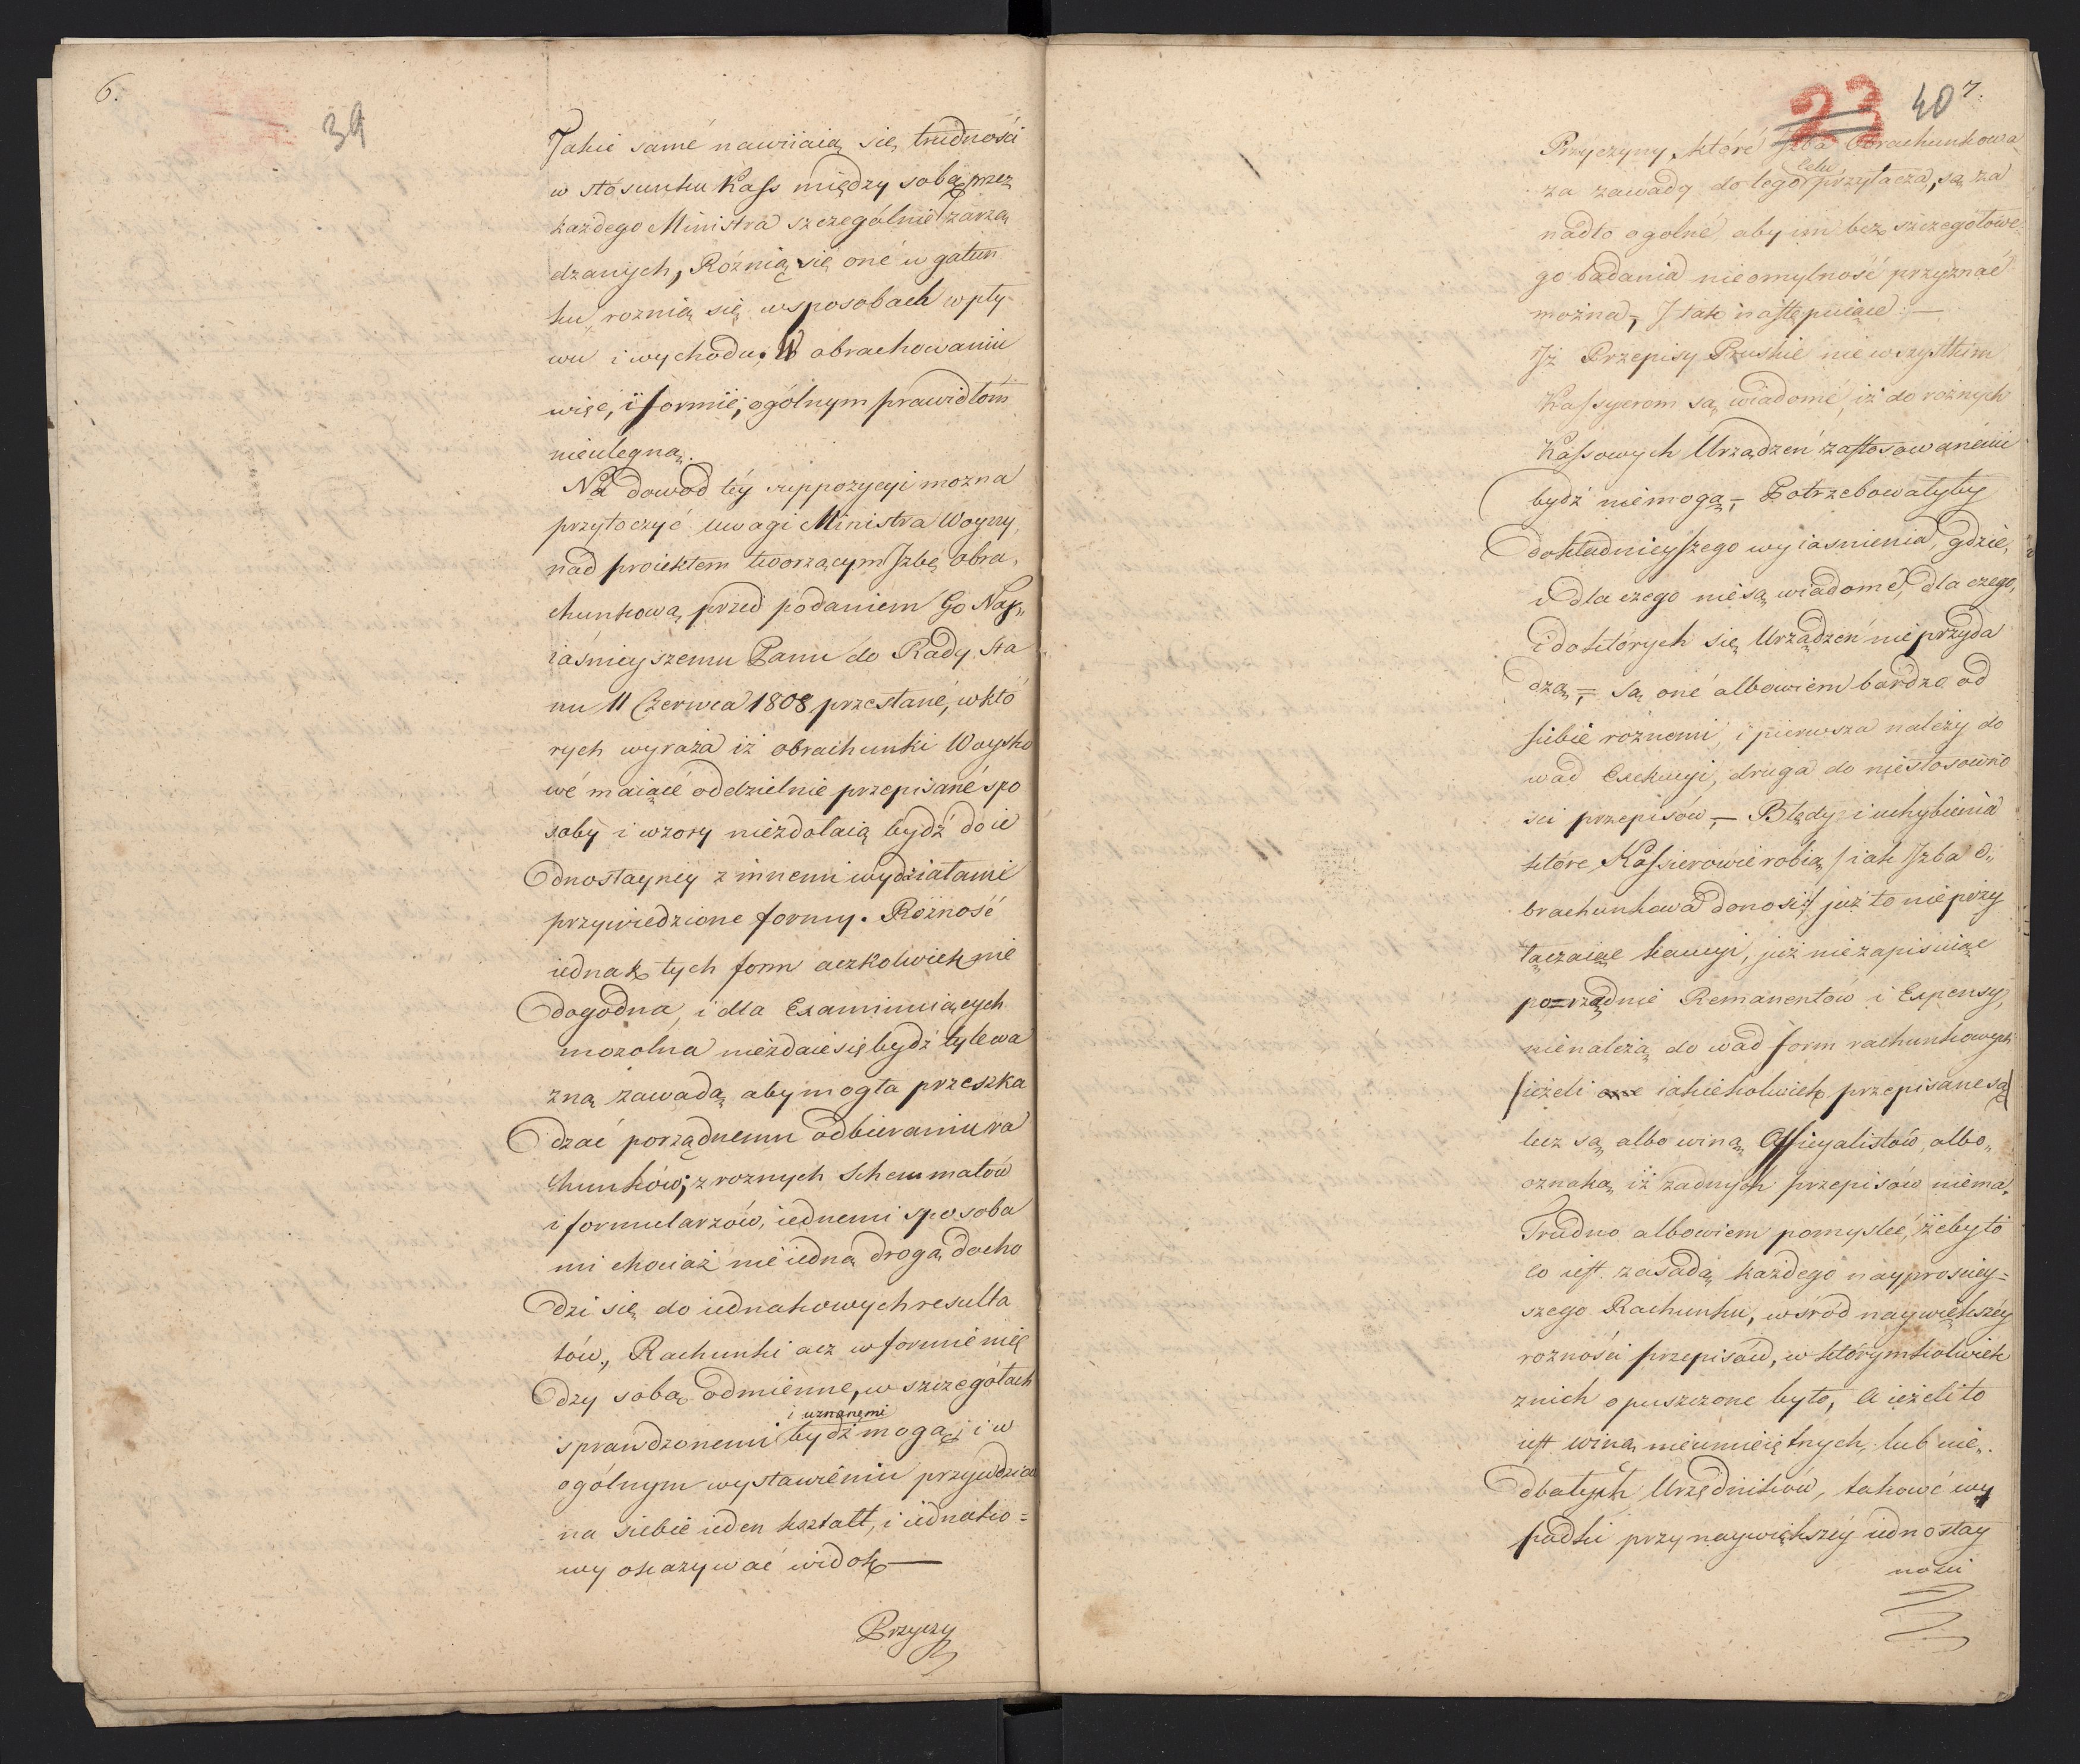 6.
39
Jakie samé nawiiaią się trudności
w stósunku Kass między sobą, przez
każdego Ministra szczególnie zarzą
dzanych, Róznią się oné w gatun
ku, roznią się w sposobach wpły-
wu i wychodu. W obrachowaniu
więc, i formie, ogólnym prawidłóm
nieulegną.
Na dowod téy suppozycyi mozna
przytoczyć uwagi Ministra Woyny,
nad proiektem tworzącym Jzbę obra„
chunkową, przed podaniem Go Nay„
iaśnieyszemu Panu do Rady Sta
nu 11 Czerwca 1808 przesłané, w któ
rych wyraża iż obrachunki Woysko
wé maiącé oddzielnie przepisané spo
soby i wzory niezdołaią bydź do ie
dnostayney z innemi wydziałami
przywiedzione formy. Rózność
iednak tych form aczkolwiek nie
dogodna, i dla Examinuiących
mozolna niezdaie się bydź tyle wa
zną zawadą aby mogła przeszka
dzać porządnemu odbieraniu ra
chunków; z roznych Schemmatów
i formularzów, iednemi sposoba
mi chociaż nie iedną drogą docho
dzi się do iednakowych resulta
tów, Rachunki acz w formie mię
dzy sobą odmienne, w szczegółach
i uznanemi
sprawdzonemi bydź mogą, i w
ogólnym wystawieniu przywdziać
na siebie ieden kształt, i iednako=
wy okazywać widok —
Przyczy
23
40
7.
Przyczyny, któré Jzba Obrachunkowa
celu
za zawady do tego przytacza, są za
nadto ogolné, aby im bez szczegółowe„
go badania nieomylność przyznać
można, J tak następuiące: —
Jż Przepisy Pruskie nie wszystkim
Kassyerom są wiadomé, iż do róznych
Kassowych Urządzeń zastosowanémi
bydź niemogą, — Potrzebowałyby
dokładnieyszego wyiasnienia, gdzie,
i dla czego nie są wiadomé, dla czego,
i do których się Urządzeń nie przyda
dzą, — Są oné albowiem bardzo od
siebie roznemi, i pierwsza należy do
wad Exekucyi, druga do niestosowno
ści przepisów, — Błędy i uchybienia
które Kassierowie robią /: iak Jzba O„
brachunkowa donosi :/ już to nie przy
łączaiąc kaucyi, już niezapisuiąc
porządnie Remanentów i Expensy,
nienależą do wad form rachunkowych
/ ieżeli one iakiekolwiek przepisane są /
lecz są albo winą Officyalistów, albo„
oznaką iż żadnych przepisów niema.
Trudno albowiem pomysleć, żeby to
co iest zasadą każdego nayprosciey=
szego Rachunku, wśród naywiększéy
rozności przepisów, w którymkolwiek
z nich opuszczone było, a ieżeli to
iest winą nieumieiętnych, lub nie„
dbałych Urzędników, takowé wy
padki przy naywiększéy iednostay
ności